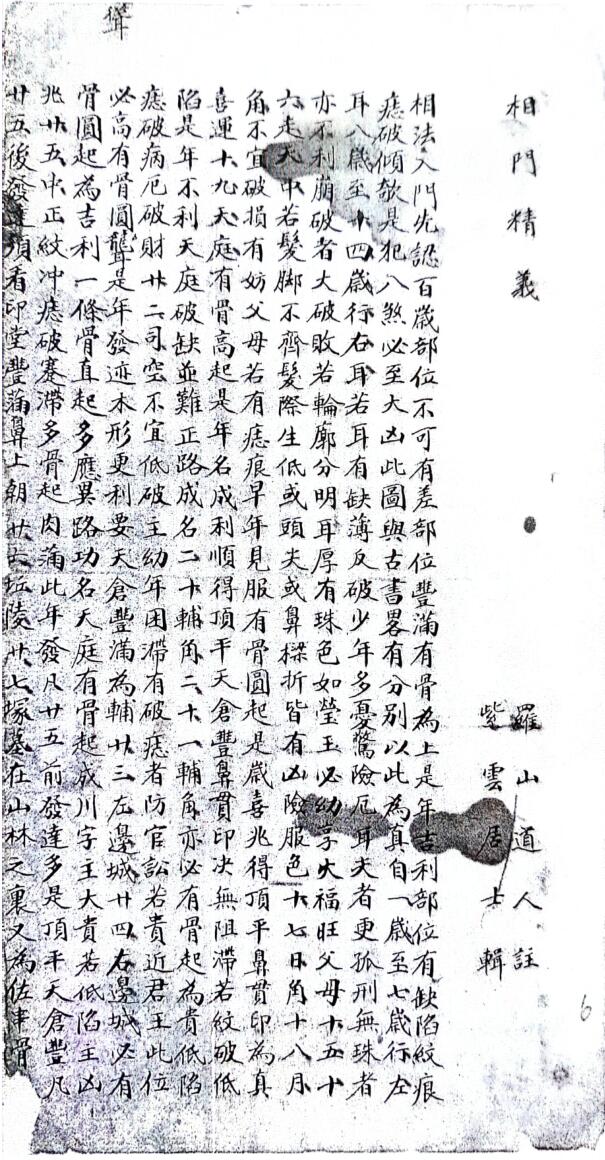 相門精義
羅山道人註
紫雲居士輯
相法入門先認百歲部位不可有差部位豐滿有骨為上是年吉利部位有缺陷紋痕
痣破傾欹是犯八煞必至大凶此圖與古書畧有分別以此為真自一歲至七歲行左
耳八歲至十四歲行右耳若耳有缺薄反破少年多憂驚險厄耳尖者更孤刑無珠者
亦不利崩破者大破敗若輪廓分明耳厚有珠色如瑩玉必幼享大福旺父母十五十
六走天中若髮脚不齊髮際生低或頭尖或鼻樑折皆有凶險服色十七日角十八月
角不宜破損有妨父母若有痣痕早年見服有骨圓起是歲喜兆得頂平鼻貫印為真
喜運十九天庭有骨高起是年名成利順得頂平天倉豐鼻貫印决無阻滯若紋破低
陷是年不利天庭破缺並難正路成名二十輔角二十一輔角亦必有骨起為貴低陷
痣破病厄破財廿二司空不宜低破主幼年困滯有破痣者防官訟若貴近君王此位
必高有骨圓聳是年發迹木形更利要天倉豐滿為輔廿三左邊城廿四右邊城必有
骨圓起為吉利一條骨直起多應異路功名天庭有骨起成川字主大貴若低陷主凶
兆廿五中正紋冲痣破蹇滯多骨起肉滿此年發凡廿五前發達多是頂平天倉豐凡
廿五後發達須看印堂豐滿鼻上朝廿六坵陵廿七塚墓在山林之裏又為佐串骨
聳
6